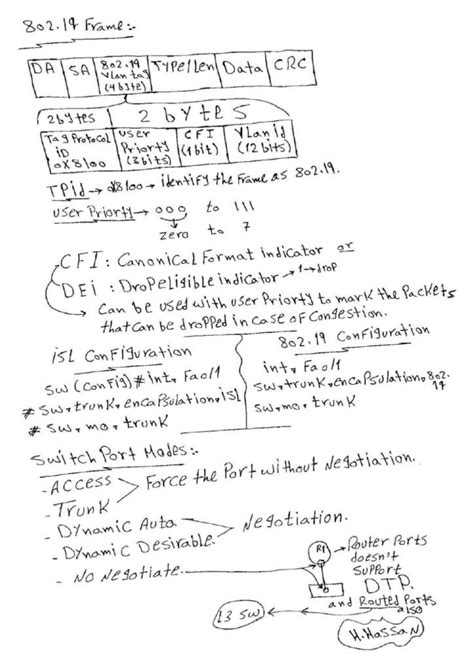 802.1q Frame:-
DA SA 802.1q Vlan tag (4 byte) Type/Len Data CRC
2 bytes 2 bytes
Tag Protocol iD 0x8100 User Priorty (3 bits) CFI (1 bit) Vlan id (12 bits)
TPid → 0x8100 → identify the Frame as 802.1q.
User Priorty → 000 to 111
zero to 7
CFI : Canonical Format indicator or
DEi : Drop eligible indicator → 1 → drop
Can be used with user Priorty to mark the Packets
that can be dropped in case of Congestion.
isL Configuration
sw (config) # int, Fa0/1
# sw, trunk, encapsulation, isl
# sw, mo, trunk
802.1q Configuration
int, Fa0/1
sw, trunk, encapsulation, 802.
1q
sw, mo, trunk
Switch Port Modes:-
- Access
- Trunk
Force the Port without Negotiation.
- Dynamic Auto
- Dynamic Desirable
Negotiation.
- No Negotiate
R1
Router Ports
doesn't
support
DTP.
and Routed Ports
also
L3 sw
H.Hassan